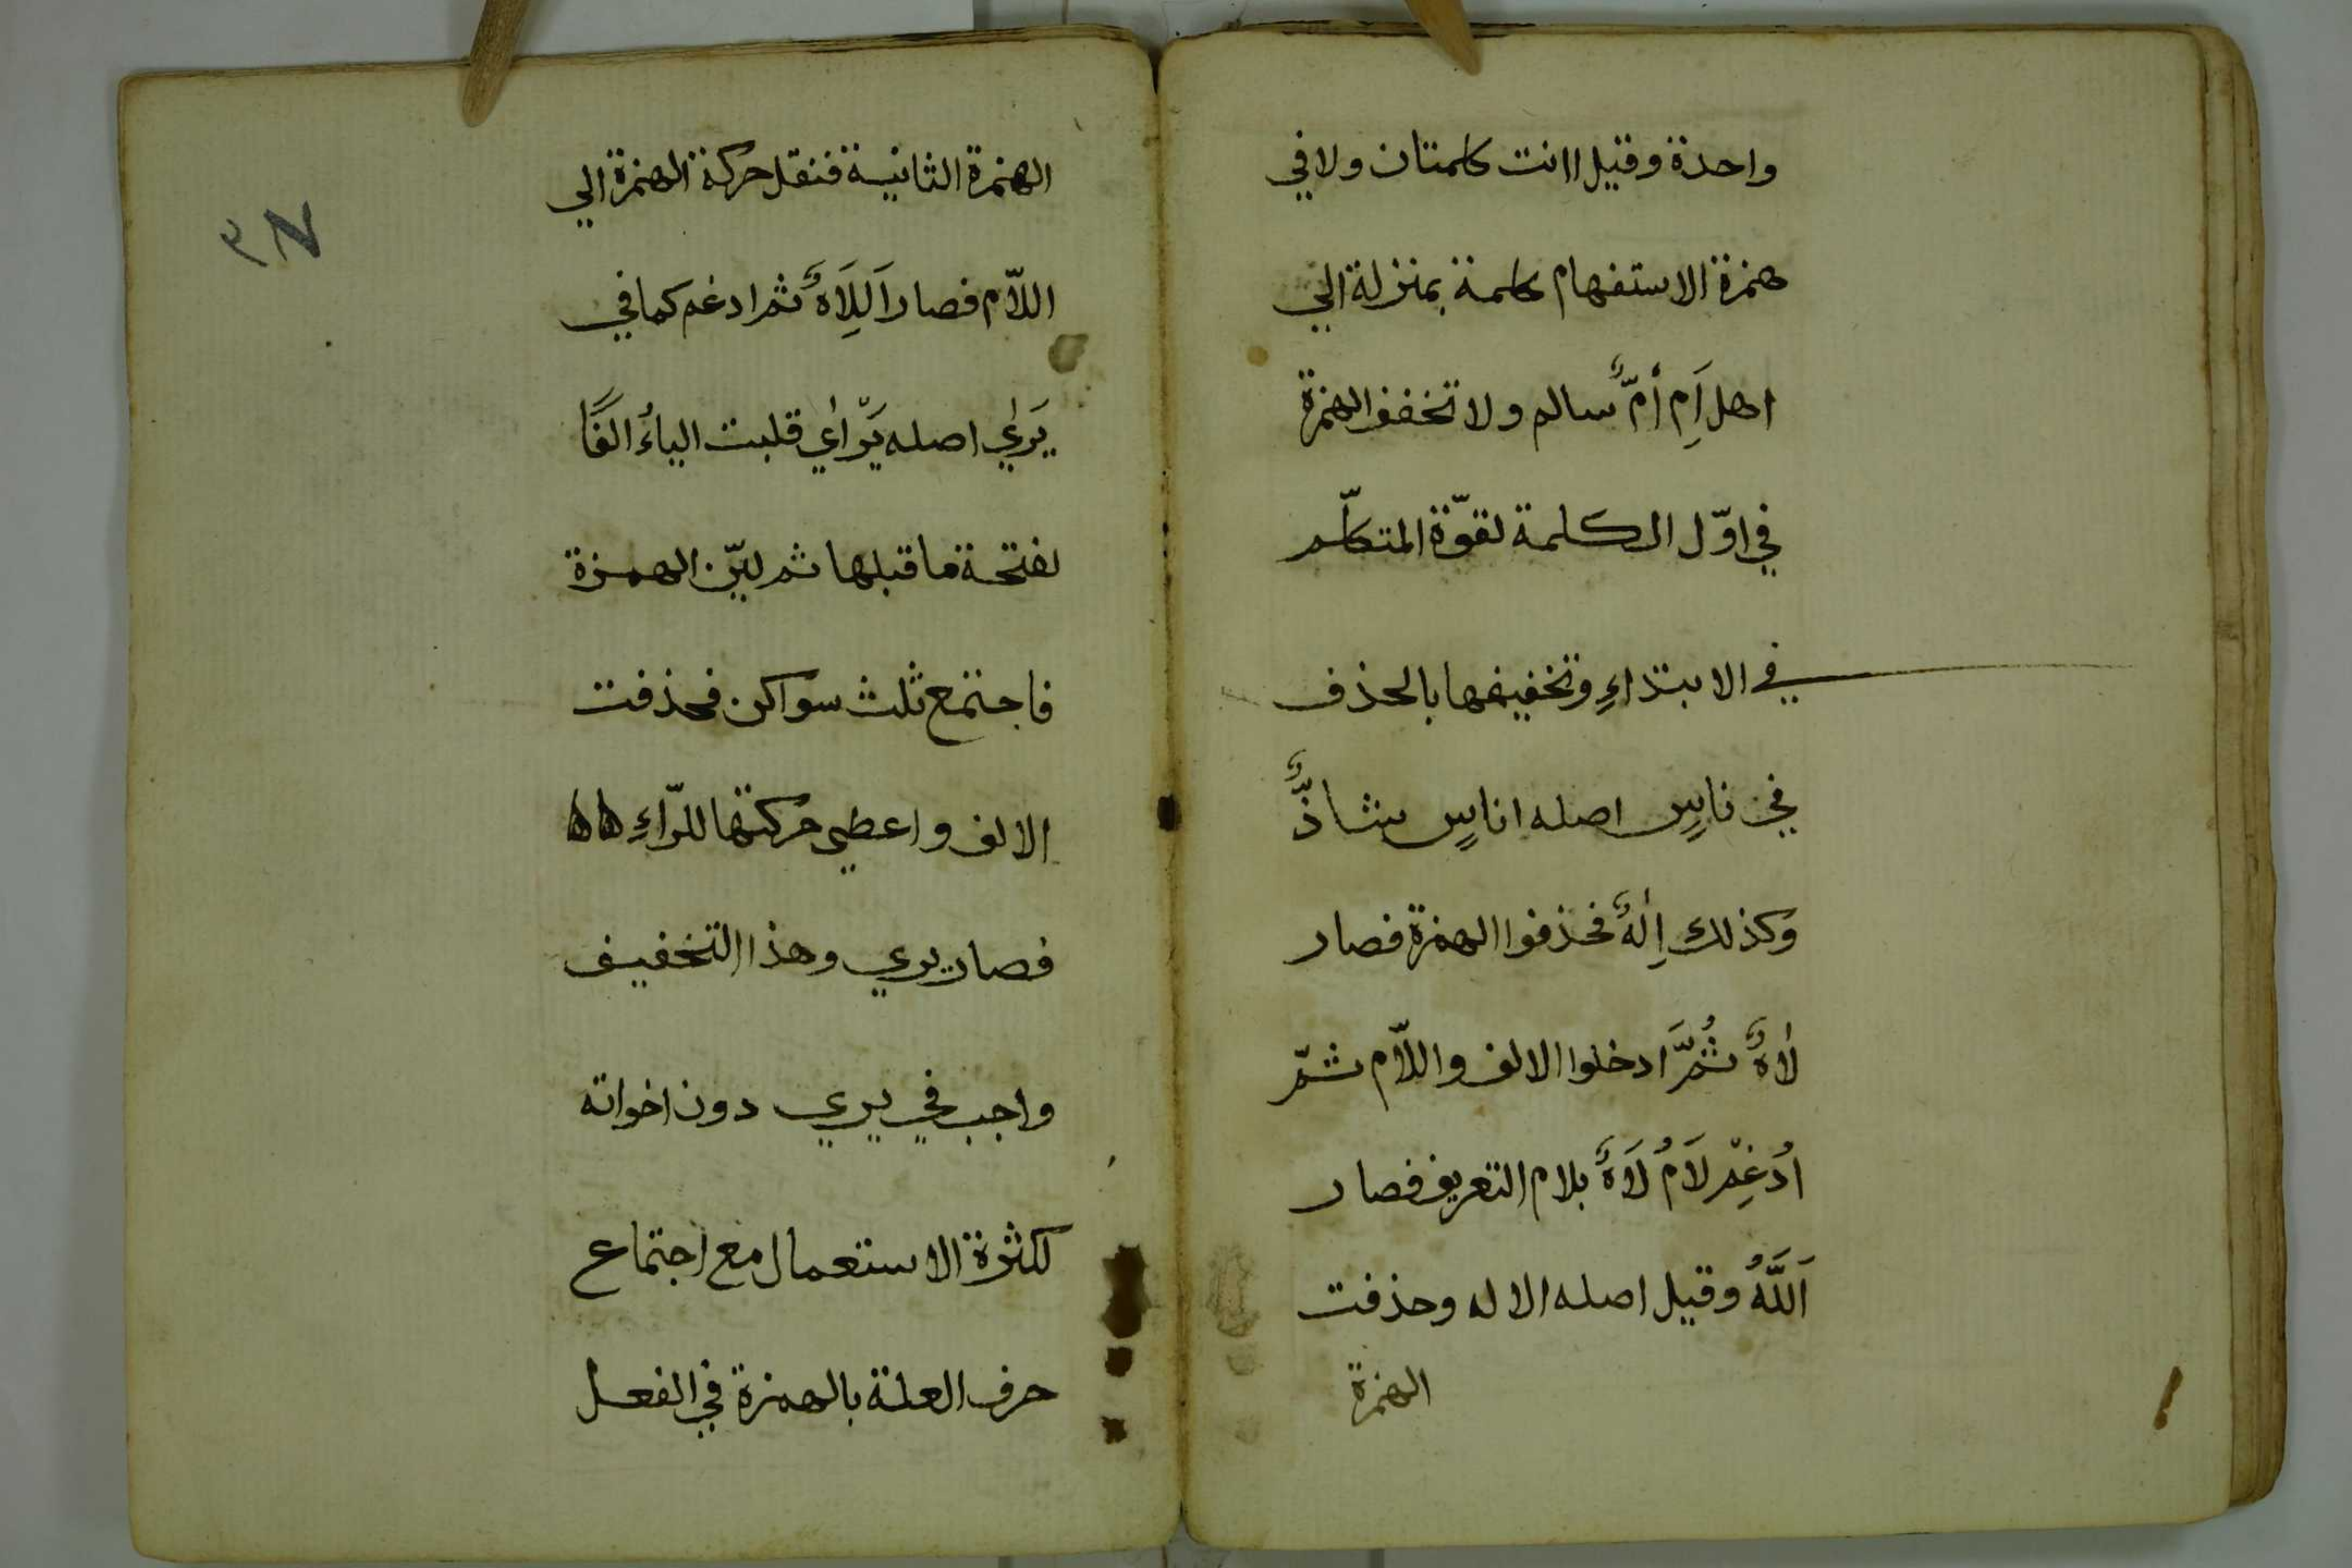 واحدة وقيل اانت كلمتان ولا في
همزة الاستفهام كلمة بمنزلة الي
اهل اَمِ أمٌّ سالم ولا تخفف الهمزة
في اوّل الكلمة لقوّة المتكلّم
في الابتداءِ وتخفيفها بالحذف
في ناسٍ اصله اناسٍ شاذٌّ
وكذلك اِلٰهٌ فحذفوا الهمزة فصار
لاهٌ ثُمَّ ادخلوا الالف واللاّم ثمّ
اُدغِمَ لَامُ لَاهٌ بلام التعريف فصار
اَللَّهُ وقيل اصله الاله وحذفت
الهمزة
الهمزة الثانية فنقل حركة الهمزة الي
اللاّم فصار اَلِلَاهٌ ثم ادغم كما في
يَرٰي اصله يَرْاَي قلبت الياءُ الفًا
لفتحة ما قبلها ثم ليّن الهمزة
فاجتمع ثلث سواكن فحذفت
الالف واعطي حركتها للرّاءِ
فصار يري وهذا التخفيف
واجب في يري دون اخواته
لكثرة الاستعمال مع اجتماع
حرف العلة بالهمزة في الفعل